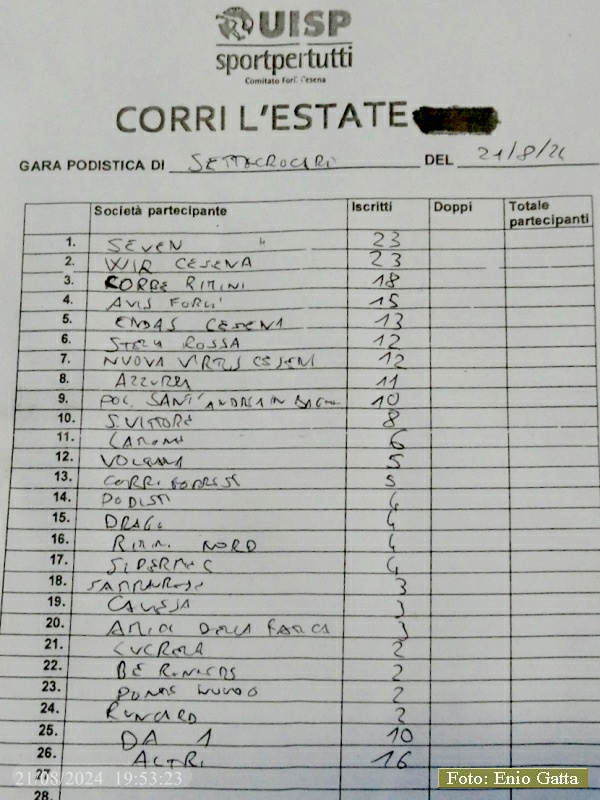 UISP
sportpertutti
Comitato Forlì Cesena
CORRI L'ESTATE
GARA PODISTICA DI SETTECROCIARI DEL 21/8/24
Società partecipante Iscritti Doppi Totale partecipanti
1. SEVEN 23
2. WIR CESENA 23
3. CORRE RIMINI 18
4. AVIS FORLI' 15
5. ENDAS CESENA 13
6. STELLA ROSSA 12
7. NUOVA VIRTUS CESENA 12
8. AZZURRA 11
9. POL. SANT'ANDREA IN BAGN 10
10. S. VITTORE 8
11. 6
12. VOLTANA 5
13. CORRI FORREST 5
14. PODISTI 4
15. DRAGO 4
16. RIMINI NORD 4
17. SIDERMEC 4
18. 3
19. 3
20. AMICI DELLA FATICA 3
21. 2
22. 2
23. PONTE NUOVO 2
24. RUNCARD 2
25. DA 1 10
26. ALTRI 16
27.
28.
21/08/2024 19:53:23
Foto: Enio Gatta